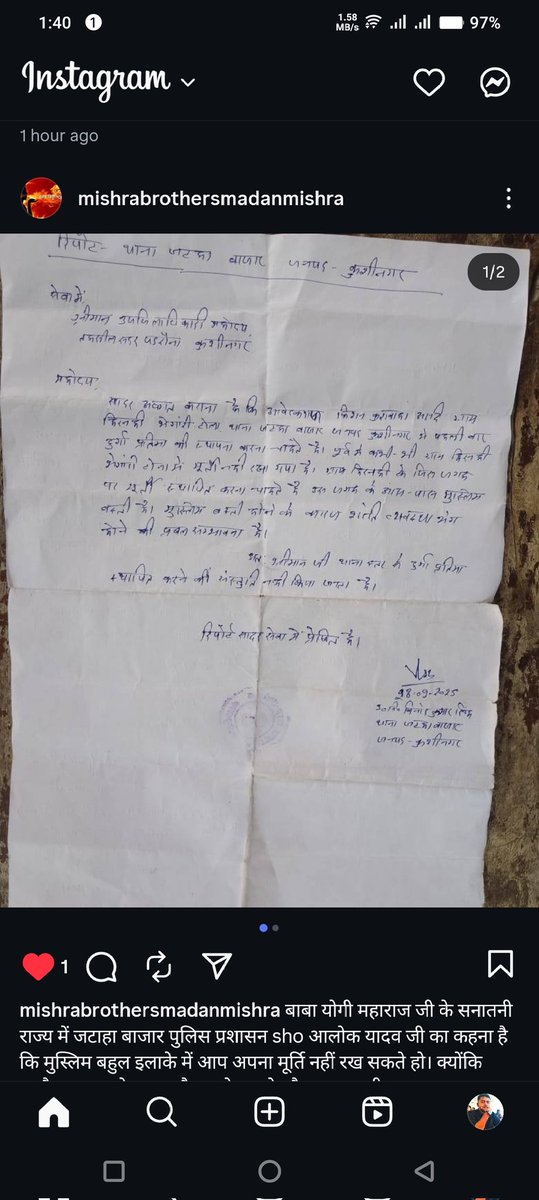 1:40
1
1.58
MB/s
97%
Instagram
1 hour ago
mishrabrothersmadanmishra
1/2
रिपोर्ट- थाना जटहा बाजार जनपद - कुशीनगर
सेवा में,
श्रीमान उपजिलाधिकारी महोदय,
तहसील सदर पडरौना कुशीनगर
महोदय,
सादर अवगत कराना है कि किशन कुशवाहा ग्राम
टोला थाना जटहा बाजार जनपद कुशीनगर में पहली बार
दुर्गा प्रतिमा की स्थापना करना चाहते है। पूर्व में कभी भी ग्राम
टोला में मूर्ती नही रखा गया है। ग्राम के जिस जगह
पर मूर्ती स्थापित करना चाहते है उस जगह के आस-पास मुस्लिम
बस्ती है। मुस्लिम बस्ती होने के कारण शांति व्यवस्था भंग
होने की प्रबल सम्भावना है।
अतः श्रीमान जी थाना स्तर से दुर्गा प्रतिमा
स्थापित करने की संस्तुति नही किया जाता है।
रिपोर्ट सादर सेवा में प्रेषित है।
18-09-2025
उ०नि० कुमार सिंह
थाना जटहा बाजार
जनपद - कुशीनगर
1
mishrabrothersmadanmishra बाबा योगी महाराज जी के सनातनी
राज्य में जटाहा बाजार पुलिस प्रशासन sho आलोक यादव जी का कहना है
कि मुस्लिम बहुल इलाके में आप अपना मूर्ति नहीं रख सकते हो। क्योंकि